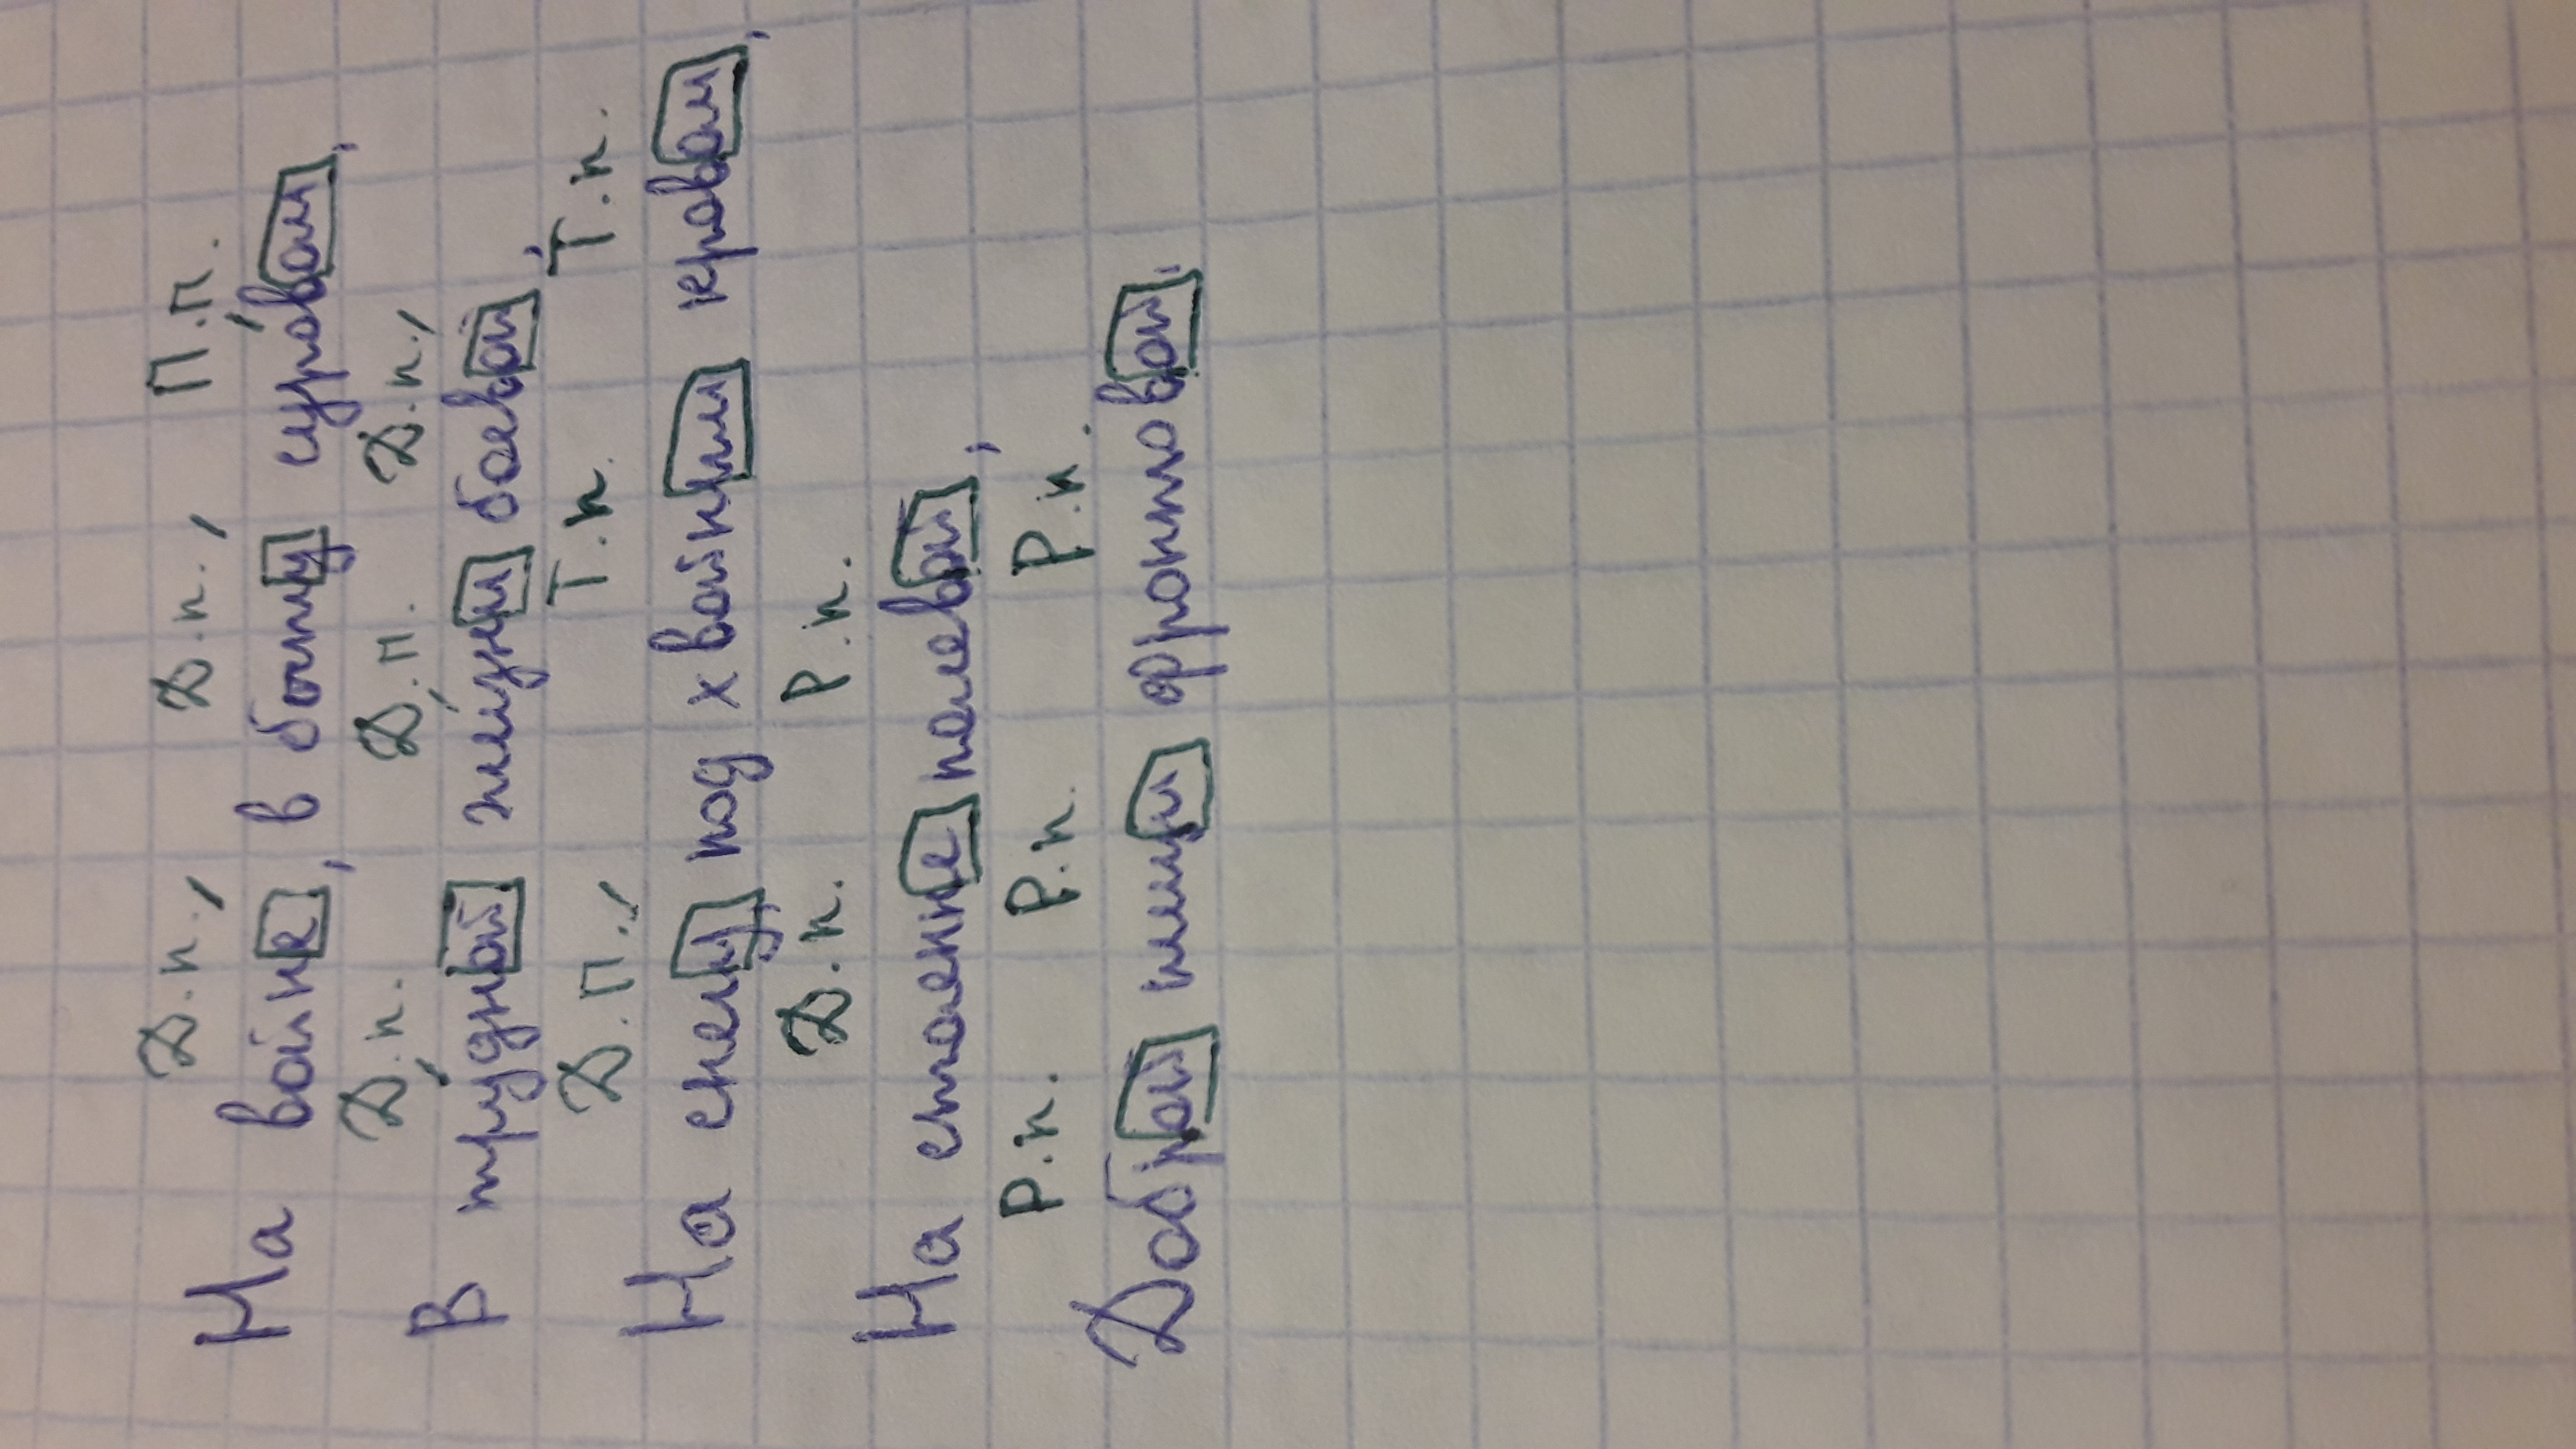 Д.п., Д.п., П.п.
На войне, в быту суровом,
Д.п. Д.п. Д.п.,
В трудной жизни боевой,
Д.п., Т.п. Т.п.
На снегу под хвойным кровом,
Д.п. Р.п.
На стоянке полевой,
Р.п. Р.п. Р.п.
Доброй пищи фронтовой,